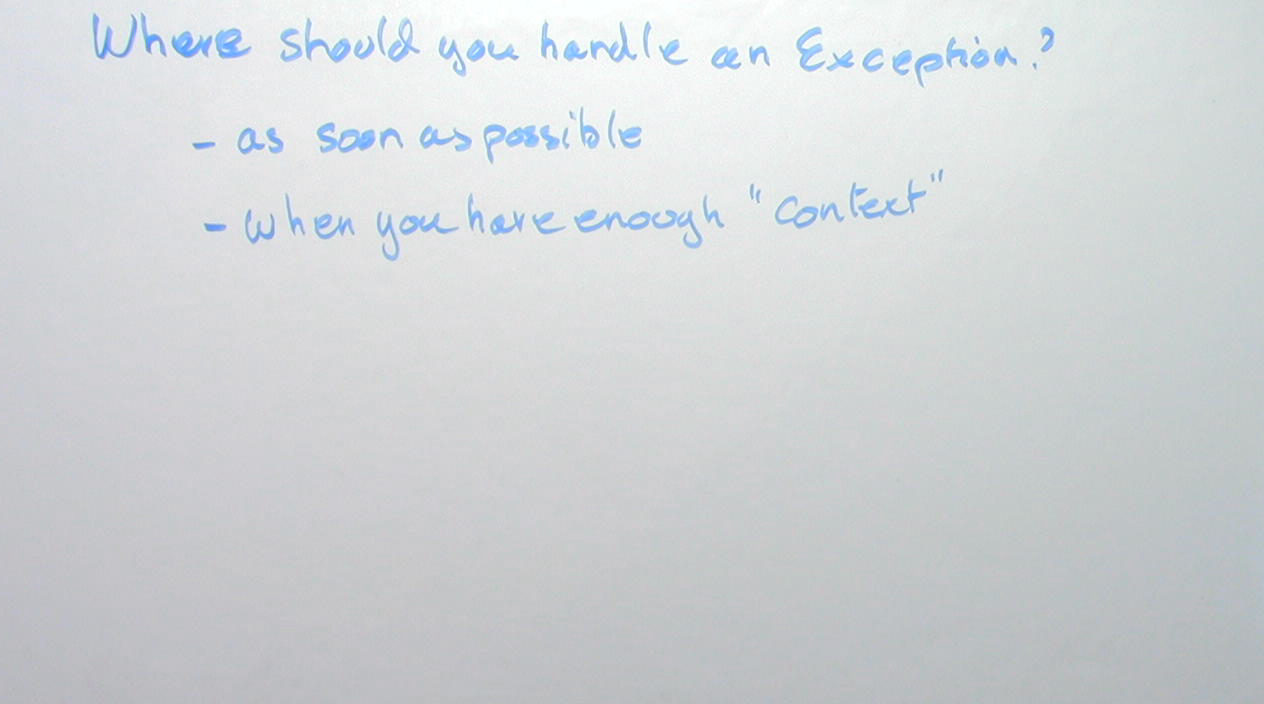 Where should you handle an Exception?
- as soon as possible
- when you have enough "context"